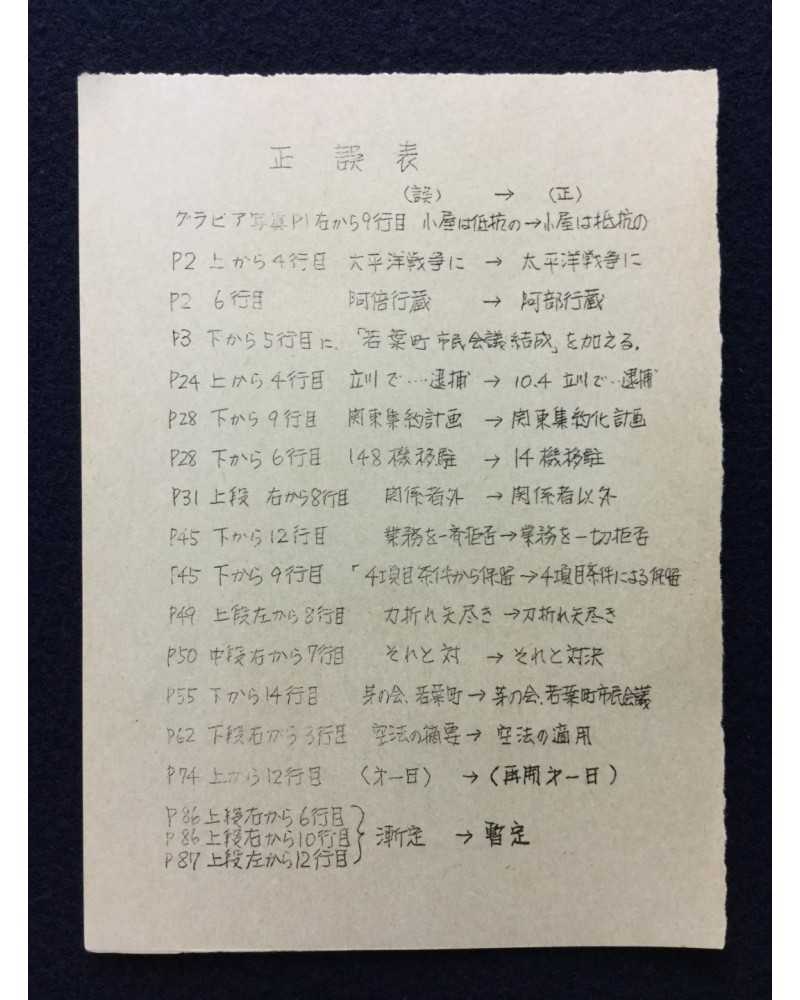 正誤表
(誤) → (正)
グラビア写真P1右から9行目 小屋は低抗の→小屋は抵抗の
P2 上から4行目 大平洋戦争に → 太平洋戦争に
P2 6行目 阿倍行蔵 → 阿部行蔵
P3 下から5行目に、「若葉町市民会議結成」を加える.
P24 上から4行目 立川で…逮捕 → 10.4 立川で…逮捕
P28 下から9行目 関東集約計画 → 関東集約化計画
P28 下から6行目 148機移駐 → 14機移駐
P31 上段 右から8行目 関係者外 → 関係者以外
P45 下から12行目 業務を一斉拒否→業務を一切拒否
P45 下から9行目 「4項目条件から保留→4項目条件による保留
P49 上段左から8行目 力折れ矢尽き→刀折れ矢尽き
P50 中段右から7行目 それと対 → それと対決
P55 下から14行目 芽の会、若葉町→芽の会、若葉町市民会議
P62 下段右から3行目 空法の摘要→ 空法の適用
P74 上から12行目 (才一日) →(再開才一日)
P86 上段右から6行目
P86 上段右から10行目 漸定 → 暫定
P87 上段左から12行目